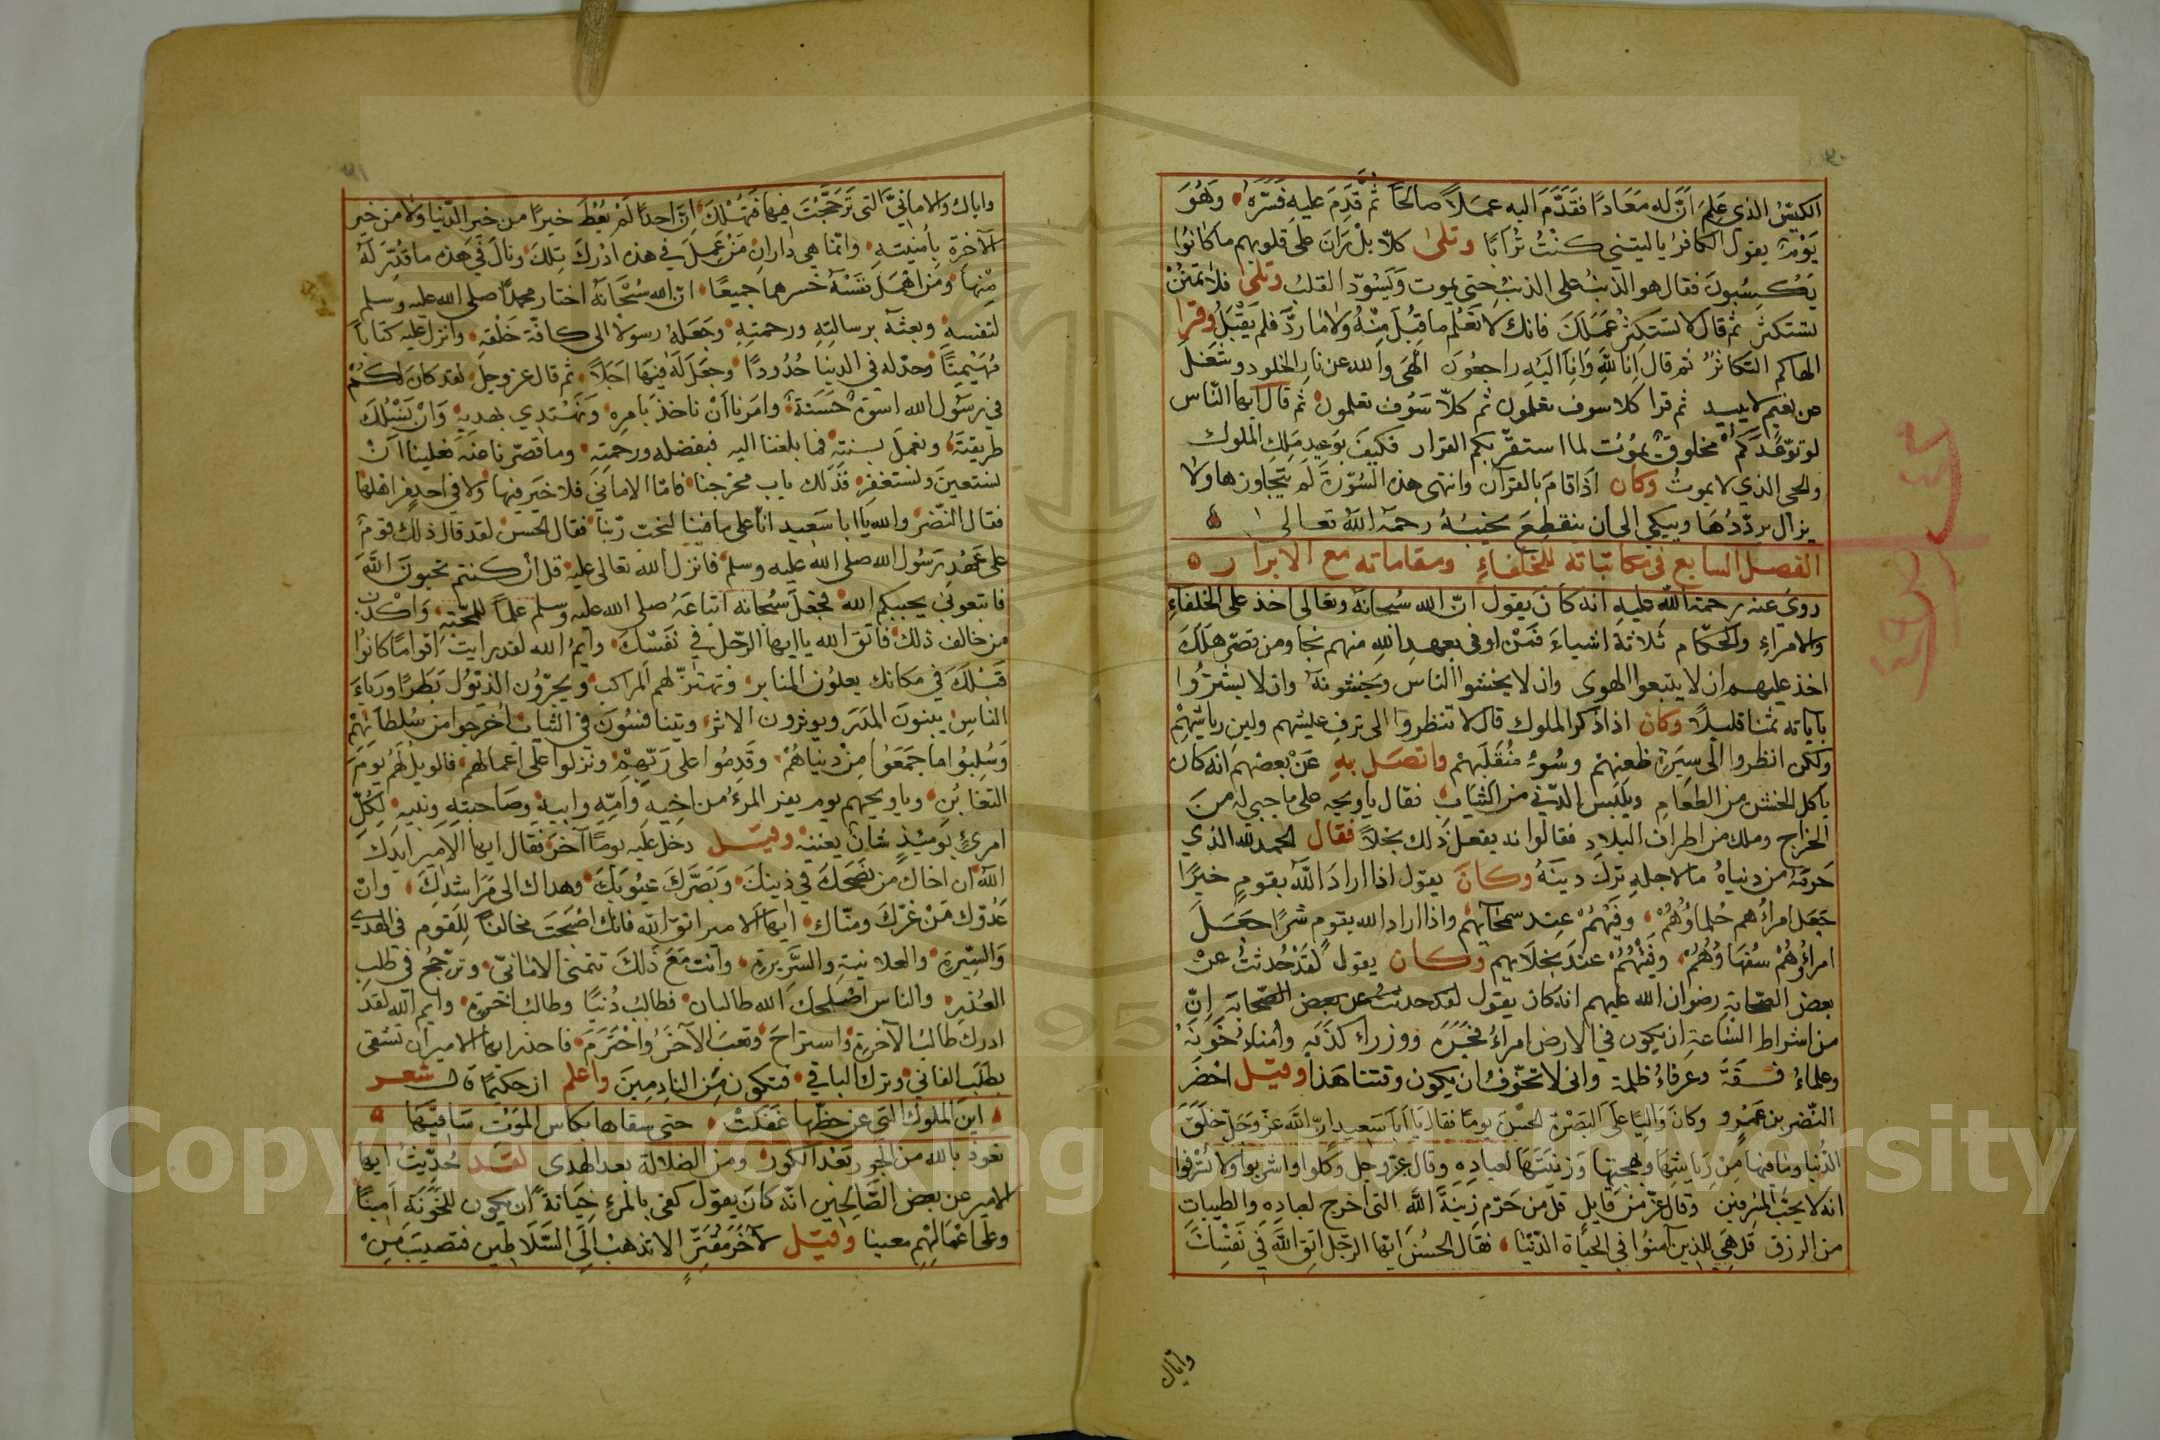 الكيّس الذي علم انّ له معادًا فقدّم اليه عملاً صالحًا ثم قدم عليه فسرّه وهو
يوم يقول الكافر يا ليتني كنت ترابًا وتلى كلّا بل ران على قلوبهم ما كانوا
يكسبون فقال هو الذنب على الذنب حتى يموت ويسودّ القلب وتلى فلا تمنن
تستكثر ثم قال لا تستكثر عملك فانك لا تعلم ما قبل منه ولا ما ردّ فلم يقبل وقرا
الهاكم التكاثر ثم قال انا لله وانا اليه راجعون الهى والله عن نار الخلود وشغل
عن نعيم لا يبيد ثم قرا كلا سوف تعلمون ثم كلّا سوف تعلمون ثم قال ايها الناس
لو توعّدكم مخلوق يموت لما استقرّ بكم القرار فكيف بوعيد ملك الملوك
والحى الذي لا يموت وكان اذا قام بالقرآن وانتهى هذه السورة لم يتجاوزها ولا
يزال يردّدها ويبكي الى ان ينقطع نحيبه رحمه الله تعالى
الفصل السابع في مكاتباته للخلفاء ومقاماته مع الابرار
روى عنه رحمة الله عليه انه كان يقول انّ الله سبحانه وتعالى اخذ على الخلفاء
والامراء والحكّام ثلاثة اشياء فمن اوفى بعهد الله منهم نجا ومن قصّر هلك
اخذ عليهم ان لا يتبعوا الهوى وان لا يخشوا الناس ويخشونه وان لا يشتروا
بآياته ثمنا قليلاً وكان اذا ذكر الملوك قال لا تنظروا الى ترف عليتهم ولين رياشهم
ولكن انظروا الى سيرة ظعنهم وسوء منقلبهم واتصل به عن بعضهم انه كان
ياكل الخشن من الطعام ويلبس الدّني من الثياب فقال يا ويحه على ما جبي له من
الخراج وملك من اطراف البلاد فقالوا انه يفعل ذلك بخلاً فقال الحمد لله الذي
حرمه من دنياه ما لاجله ترك دينه وكان يقول اذا اراد الله بقوم خيرًا
جعل امراءهم حلماؤهم وفيهم عند سمحائهم واذا اراد الله بقوم شرًا جعل
امراؤهم سفهاؤهم وفيئهم عند بخلايهم وكان يقول لقد حدثت عن
بعض الصحابة رضوان الله عليهم انه كان يقول لقد حدثت عن بعض الصحابة انّ
من اشراط الساعة ان يكون في الارض امراء فجرة ووزراء كذبه وامناء خونة
وعلماء فسقة وعرفاء ظلمة واني لاتخوّف ان يكون وقتنا هذا وقيل احضر
النضر بن عمرو وكان واليًا على البصرة الحسن يومًا فقال يا ابا سعيد انّ الله عزّ وجلّ خلق
الدنيا وما فيها من رياشها وبهجتها وزينتها لعباده وقال عز وجل وكلوا واشربوا ولا تسرفوا
انه لا يحبّ المسرفين وقال عزّ من قايل قل من حرّم زينة الله التى اخرج لعباده والطيبات
من الرزق قل هى للذين آمنوا في الحياة الدنيا فقال الحسن ايها الرجل اتق الله في نفسك
واياك
واياك والاماني التى ترجّحت فيها فتهلك انّ احدًا لم يعط خيرًا من خير الدنيا ولا من خير
الآخرة بامنيته وانما هى داران من عمل في هذه ادرك تلك ونال في هذه ما قدّر له
منها ومن اهمل نفسه خسرهما جميعًا ان الله سبحانه اختار محمدًا صلى الله عليه وسلم
لنفسه وبعثه برسالته ورحمته وجعله رسولا الى كافّة خلقه وانزل عليه كتابًا
مهيمنًا وحدّ له في الدنيا حدودًا وجعل له فيها اجلاً ثم قال عز وجل لقد كان لكم
في رسول الله اسوة حسنة وامرنا ان ناخذ بامره ونهتدي بهديه وان نسلك
طريقته ونعمل بسنته فما بلغنا اليه فبفضله ورحمته وما قصّرنا عنه فعلينا ان
نستعين ونستغفر فذلك باب مخرجنا فامّا الاماني فلا خير فيها ولا في احد من اهلها
فقال النضر والله يا ابا سعيد انا على ما فينا لنحبّ ربّنا فقال الحسن لقد قال ذلك قوم
على عهد رسول الله صلى الله عليه وسلم فانزل الله تعالى عليه قل ان كنتم تحبون الله
فاتبعوني يحببكم الله فجعل سبحانه اتباعه صلى الله عليه وسلم علما للمحبّة واكذب
من خالف ذلك فاتق الله يا ايها الرجل في نفسك وايم الله لقد رايت اقوامًا كانوا
قبلك في مكانك يعلون المنابر وتهتزّ لهم المراكب ويجرّون الذيول بطرًا ورياء
الناس يبنون المدر ويوثرون الاثر ويتنافسون في الثياب اخرجوا من سلطانهم
وسلبوا ما جمعوا من دنياهم وقدموا على ربّهم ونزلوا على اعمالهم فالويل لهم يوم
التغابن ويا ويحهم يوم يفر المرء من اخيه وامّه وابيه وصاحبته وبنيه لكلّ
امرئ يومئذ شان يغنيه وقيل دخل عليه يومًا آخر فقال ايها الامير ايدك
الله ان اخاك من نصحك في دينك وبصّرك عيوبك وهداك الى مراشدك وان
عدوّك من غرّك ومنّاك ايها الامير اتق الله فانك اصبحت مخالفًا للقوم في الهدى
والسيرة والعلانية والسريرة وانت مع ذلك تتمنى الاماني وترجّح في طلب
العذر والناس اصلحك الله طالبان فطالب دنيا وطالب اخرة وايم الله لقد
ادرك طالب الآخرة واستراح وتعب الآخر واحترم فاحذر ايها الامير ان تشقى
بطلب الفاني وترك الباقي فتكون من النادمين واعلم ان حكيمًا قال شعر
اين الملوك التى عن حظها غفلت حتى سقاها بكاس الموت ساقيها
نعوذ بالله من الحور بعد الكور ومن الضلالة بعد الهدى لقد حدّثت ايها
الامير عن بعض الصالحين انّه كان يقول كفى بالمرء خيانة ان يكون للخونة امينًا
وعلى اعمالهم معينا وقيل لآخر الا تذهب الى السلاطين فتصيب من